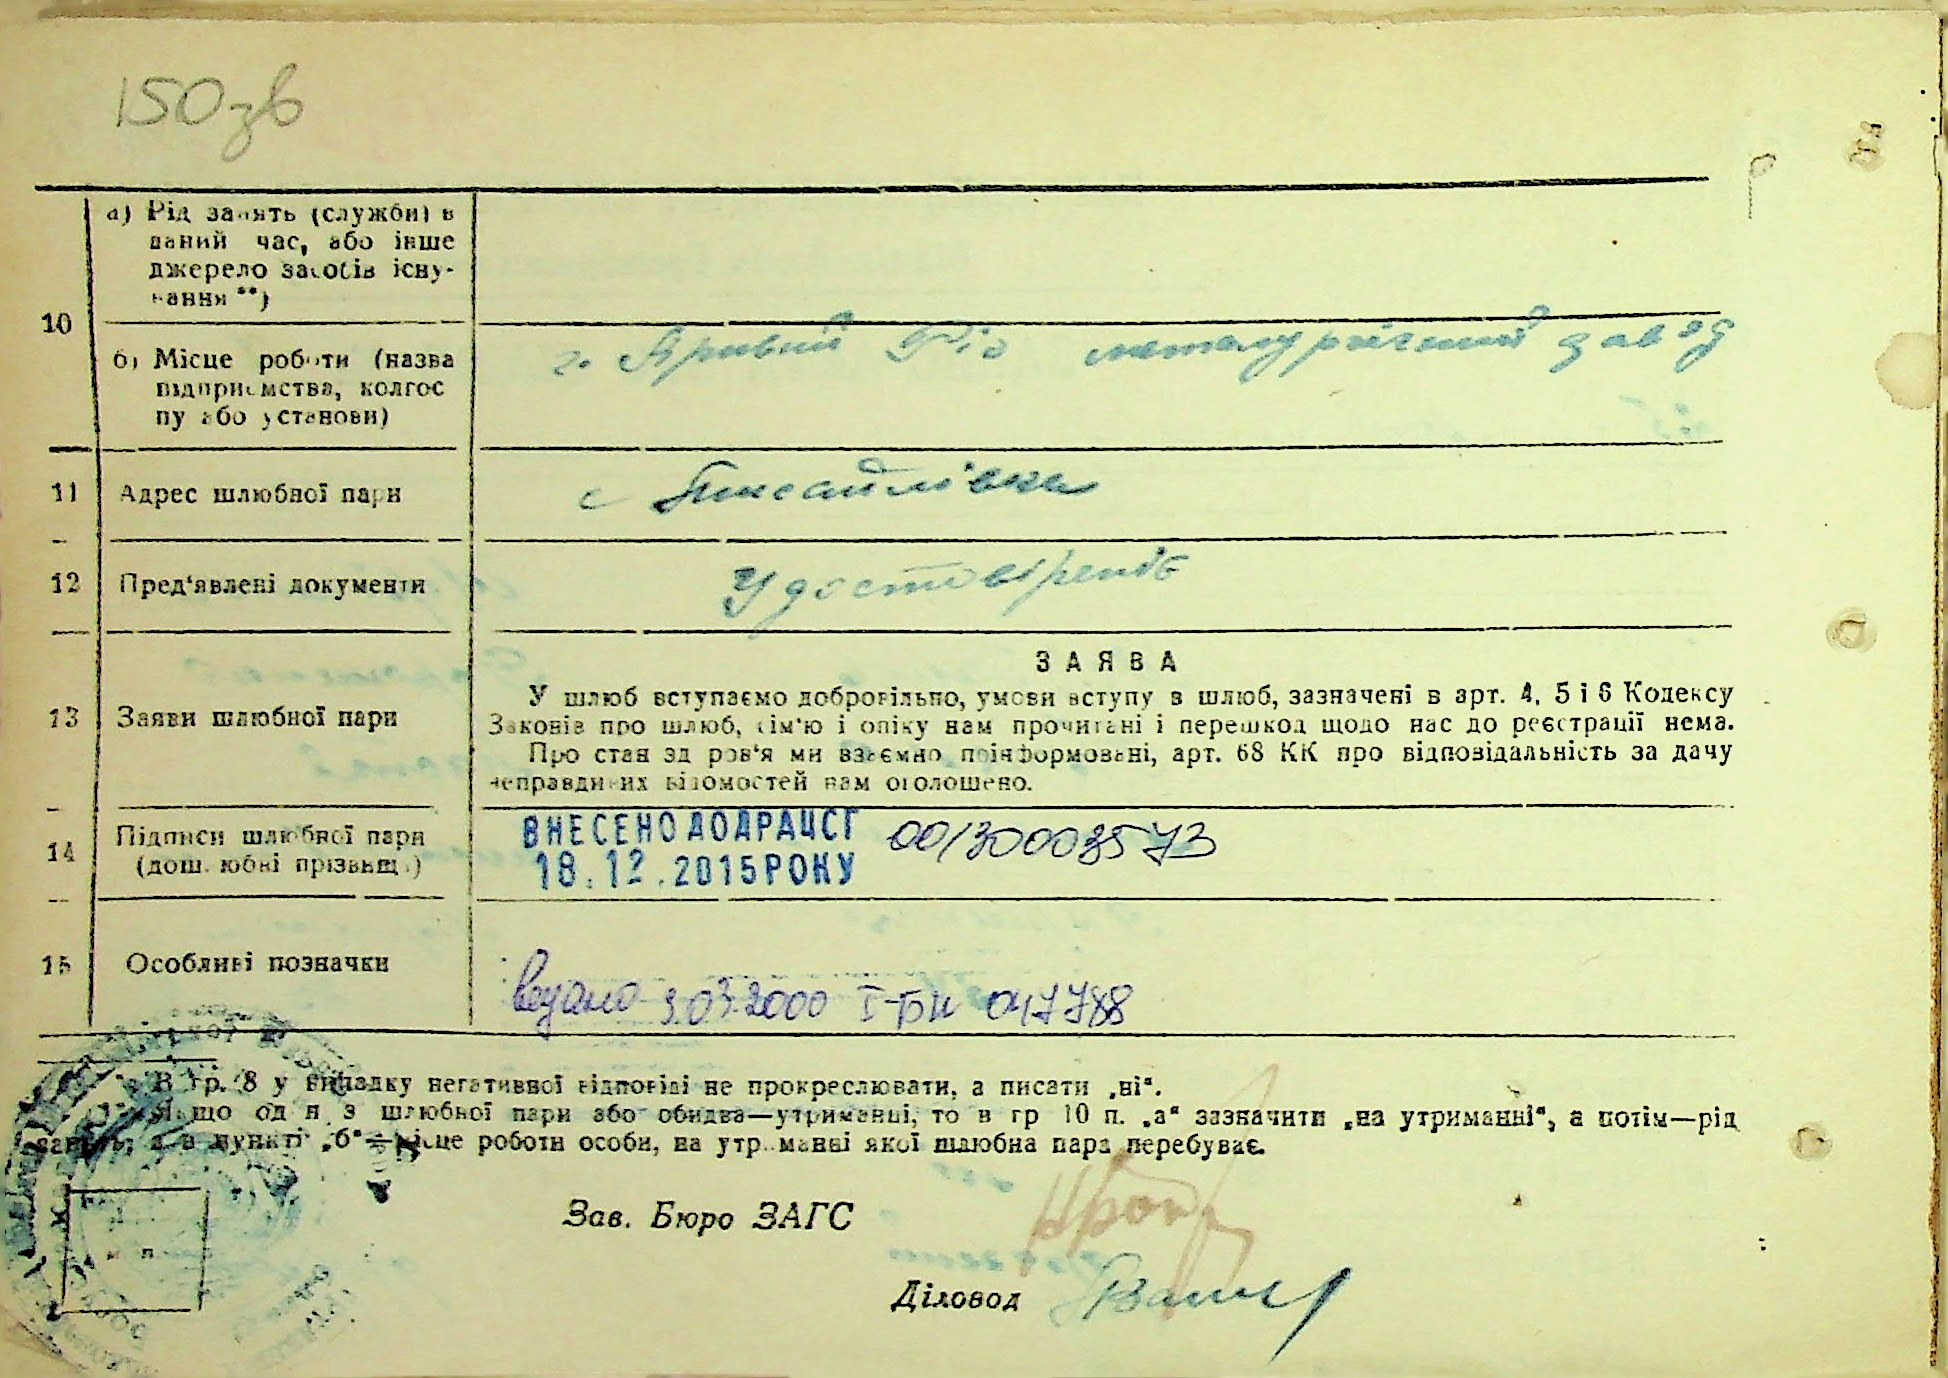 150зв
10
а) Рід занять (служби) в
даний час, або інше
джерело засобів існу-
вання **)
б) Місце роботи (назва
підприємства, колгос
пу або установи)
г. Кривий Ріг металургічний завод
11
Адрес шлюбної пари
с
12
Пред'явлені документи
Удостовірення
13
Заяви шлюбної пари
ЗАЯВА
У шлюб вступаємо добровільно, умови вступу в шлюб, зазначені в арт. 4, 5 і 6 Кодексу
Законів про шлюб, сім'ю і опіку нам прочитані і перешкод щодо нас до реєстрації нема.
Про стан здоров'я ми взаємно поінформовані, арт. 68 КК про відповідальність за дачу
неправдивих відомостей нам оголошено.
14
Підписи шлюбної пари
(дошлюбні прізвища)
ВНЕСЕНО ДО ДРАЦСГ 00130003573
18.12.2015 РОКУ
15
Особливі позначки
видано 3.03.2000 І-БК 047788
В гр. 8 у випадку негативної відповіді не прокреслювати, а писати „ні“.
Якщо один з шлюбної пари або обидва—утриманці, то в гр 10 п. „а“ зазначити „на утриманні“, а потім—рід
занять, а в пункті „б“—місце роботи особи, на утриманні якої шлюбна пара перебуває.
м п.
Зав. Бюро ЗАГС
Діловод